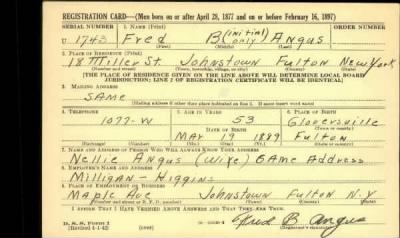 REGISTRATION CARD—(Men born on or after April 28, 1877 and on or before February 16, 1897)
SERIAL NUMBER 1. NAME (Print)
U 1743 Fred B (initial only) Angus
(First) (Middle) (Last)
2. PLACE OF RESIDENCE (Print)
18 Miller St. Johnstown Fulton New York
(Number and street) (Town, township, village, or city) (County) (State)
[THE PLACE OF RESIDENCE GIVEN ON THE LINE ABOVE WILL DETERMINE LOCAL BOARD
JURISDICTION; LINE 2 OF REGISTRATION CERTIFICATE WILL BE IDENTICAL]
3. MAILING ADDRESS
SAME
[Mailing address if other than place indicated on line 2. If same insert word same]
4. TELEPHONE 5. AGE IN YEARS 6. PLACE OF BIRTH
1077-W 53 Gloversville
DATE OF BIRTH (Town or county)
MAY 19 1889 Fulton
(Mo.) (Day) (Yr.) (State or country)
7. NAME AND ADDRESS OF PERSON WHO WILL ALWAYS KNOW YOUR ADDRESS
Nellie Angus (Wife) SAME Address
8. EMPLOYER'S NAME AND ADDRESS
Milligan - Higgins
9. PLACE OF EMPLOYMENT OR BUSINESS
Maple Ave Johnstown Fulton N.Y
(Number and street or R. F. D. number) (Town) (County) (State)
I AFFIRM THAT I HAVE VERIFIED ABOVE ANSWERS AND THAT THEY ARE TRUE.
D. S. S. Form 1
(Revised 4-1-42) (over) Fred B. Angus